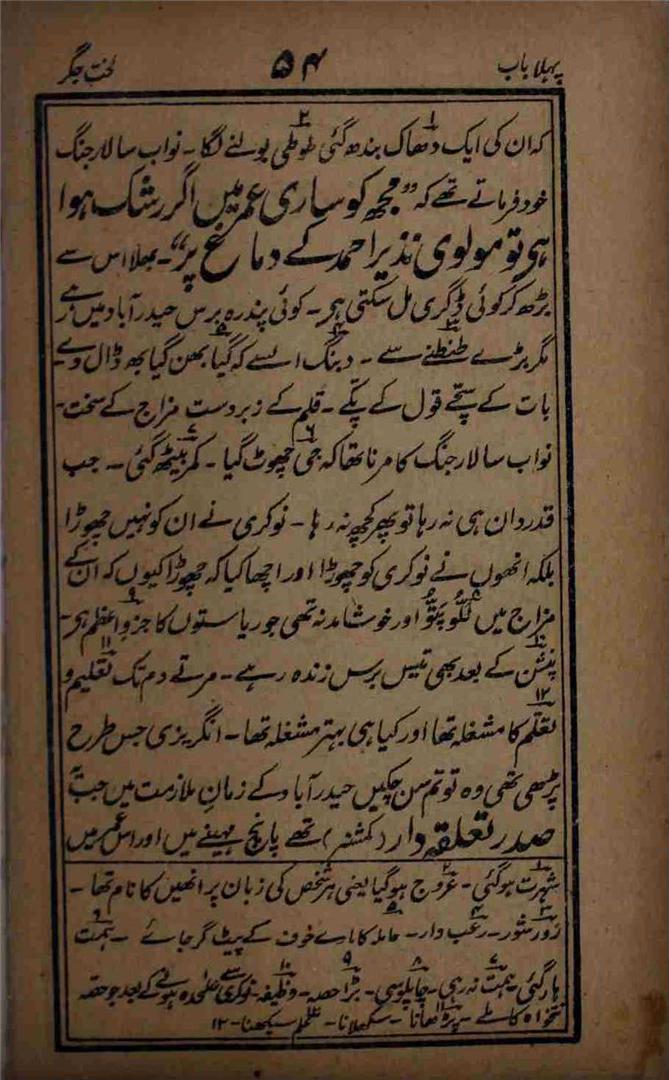 پہلا باب ۵۴ لخت جگر
کہ ان کی ایک دھاک بندھ گئی طوطی بولنے لگا۔ نواب سالار جنگ
خود فرماتے تھے کہ ”مجھ کو ساری عمر میں اگر رشک ہوا
ہی تو مولوی نذیر احمد کے دماغ پر“۔ بھلا اس سے
بڑھ کر کوئی ڈگری مل سکتی ہی۔ کوئی پندرہ برس حیدرآباد میں رہے
مگر بڑے طنطنے سے۔ دبنگ ایسے کہ گیا بھن گیا بھ ڈال دے۔
بات کے سچے قول کے پکے۔ قلم کے زبردست مزاج کے سخت۔
نواب سالار جنگ کا مرنا تھا کہ جی چھوٹ گیا۔ کمر بیٹھ گئی۔ جب
قدردان ہی نہ رہا تو پھر کچھ نہ رہا۔ نوکری نے ان کو نہیں چھوڑا
بلکہ انھوں نے نوکری کو چھوڑا اور اچھا کیا کہ چھوڑا کیوں کہ ان کے
مزاج میں للّو پتّو اور خوشامد نہ تھی جو ریاستوں کا جزو اعظم ہی۔
پنشن کے بعد بھی تیس برس زندہ رہے۔ مرتے دم تک تعلیم و
تعلّم کا مشغلہ تھا اور کیا ہی بہتر مشغلہ تھا۔ انگریزی جس طرح
پڑھی تھی وہ تو تم سن چکیں حیدرآباد کے زمانِ ملازمت میں جب یہ
صدر تعلقہ دار (کمشنر) تھے پانچ مہینے میں اور اس عمر میں
۱ شہرت ہو گئی۔ ۲ عروج ہو گیا یعنی ہر شخص کی زبان پر انھیں کا نام تھا۔
۳ زور شور۔ ۴ رعب دار۔ ۵ حاملہ کا مارے خوف کے پیٹ گر جائے۔ ۶ ہمت
ہار گئی۔ ۷ ہمت نہ رہی۔ ۸ چاپلوسی۔ ۹ بڑا حصہ۔ ۱۰ وظیفہ نوکری سے علحدہ ہونے کے بعد جو حصہ
تنخواہ کا ملے۔ ۱۱ پڑھانا۔ سکھلانا۔ ۱۲ علم سیکھنا۔ ۱۲